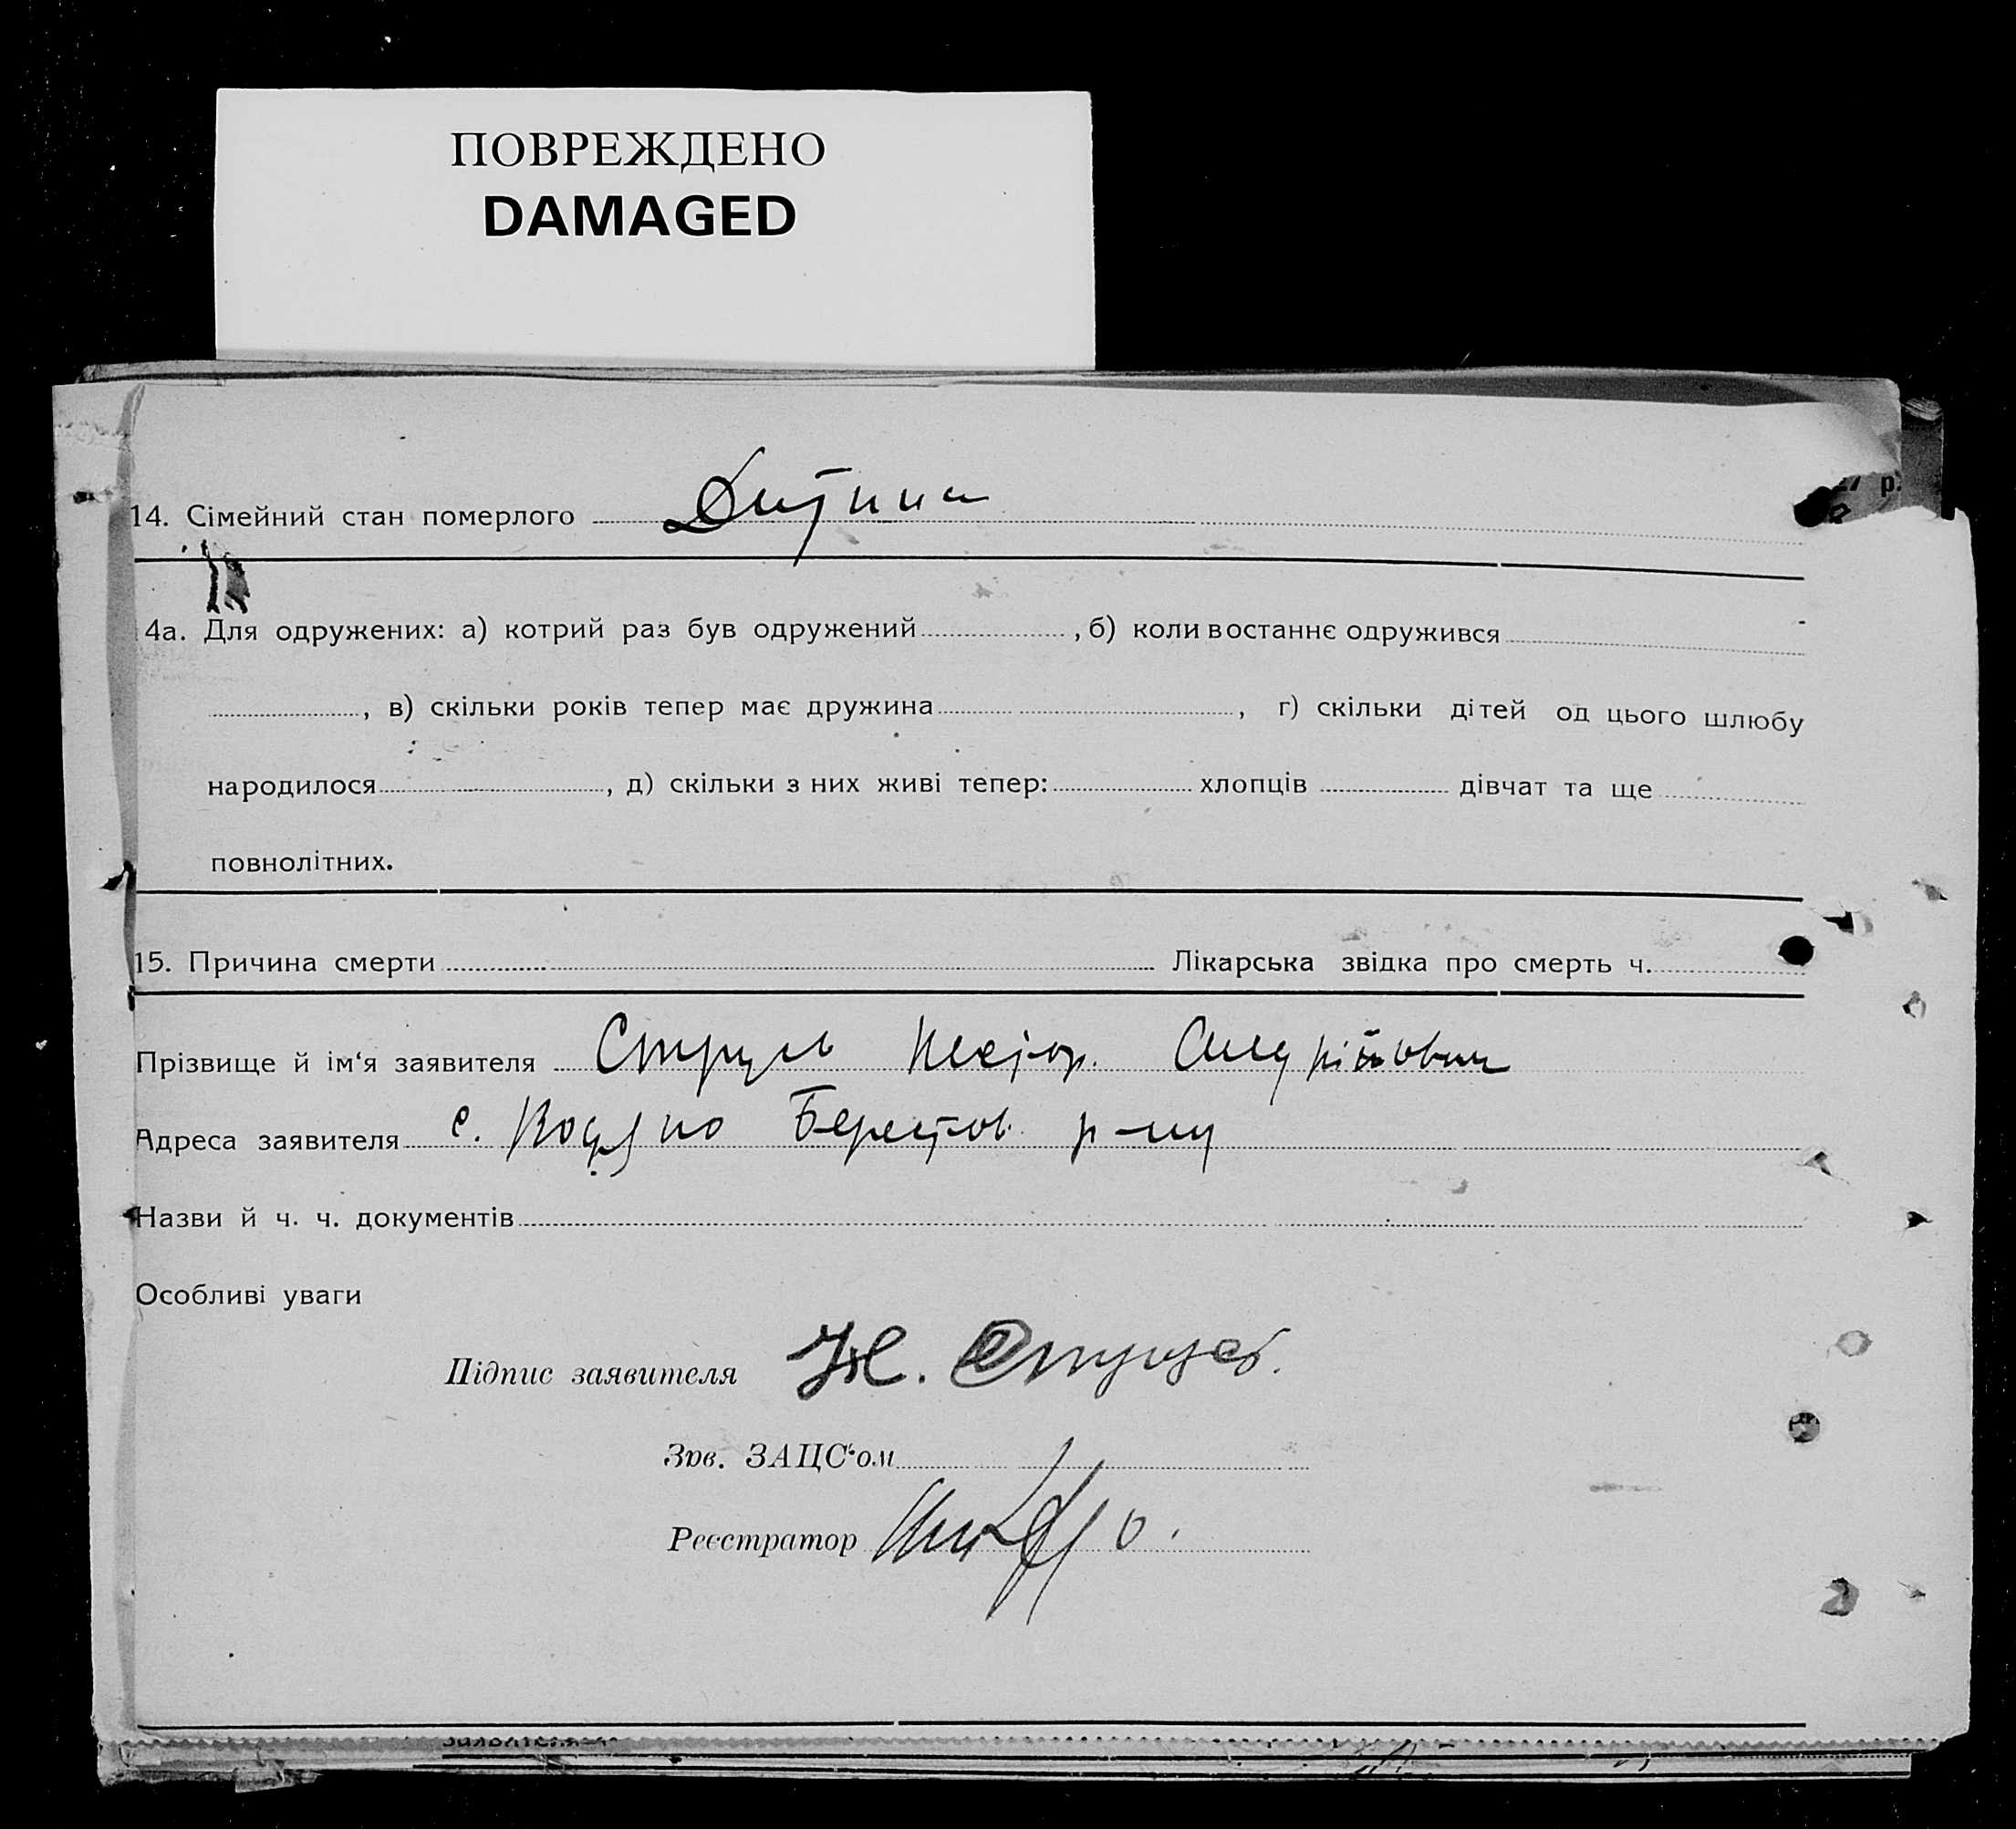 ПОВРЕЖДЕНО
DAMAGED
27 р.
14. Сімейний стан померлого Дитина
14а. Для одружених: а) котрий раз був одружений , б) коли востаннє одружився
, в) скільки років тепер має дружина , г) скільки дітей од цього шлюбу
народилося , д) скільки з них живі тепер: хлопців дівчат та ще
повнолітних.
15. Причина смерти Лікарська звідка про смерть ч.
Прізвище й ім‘я заявителя
Адреса заявителя с. Водяно Берестов. р-ну
Назви й ч. ч. документів
Особливі уваги
Підпис заявителя
Зав. ЗАЦС‘ом
Реєстратор